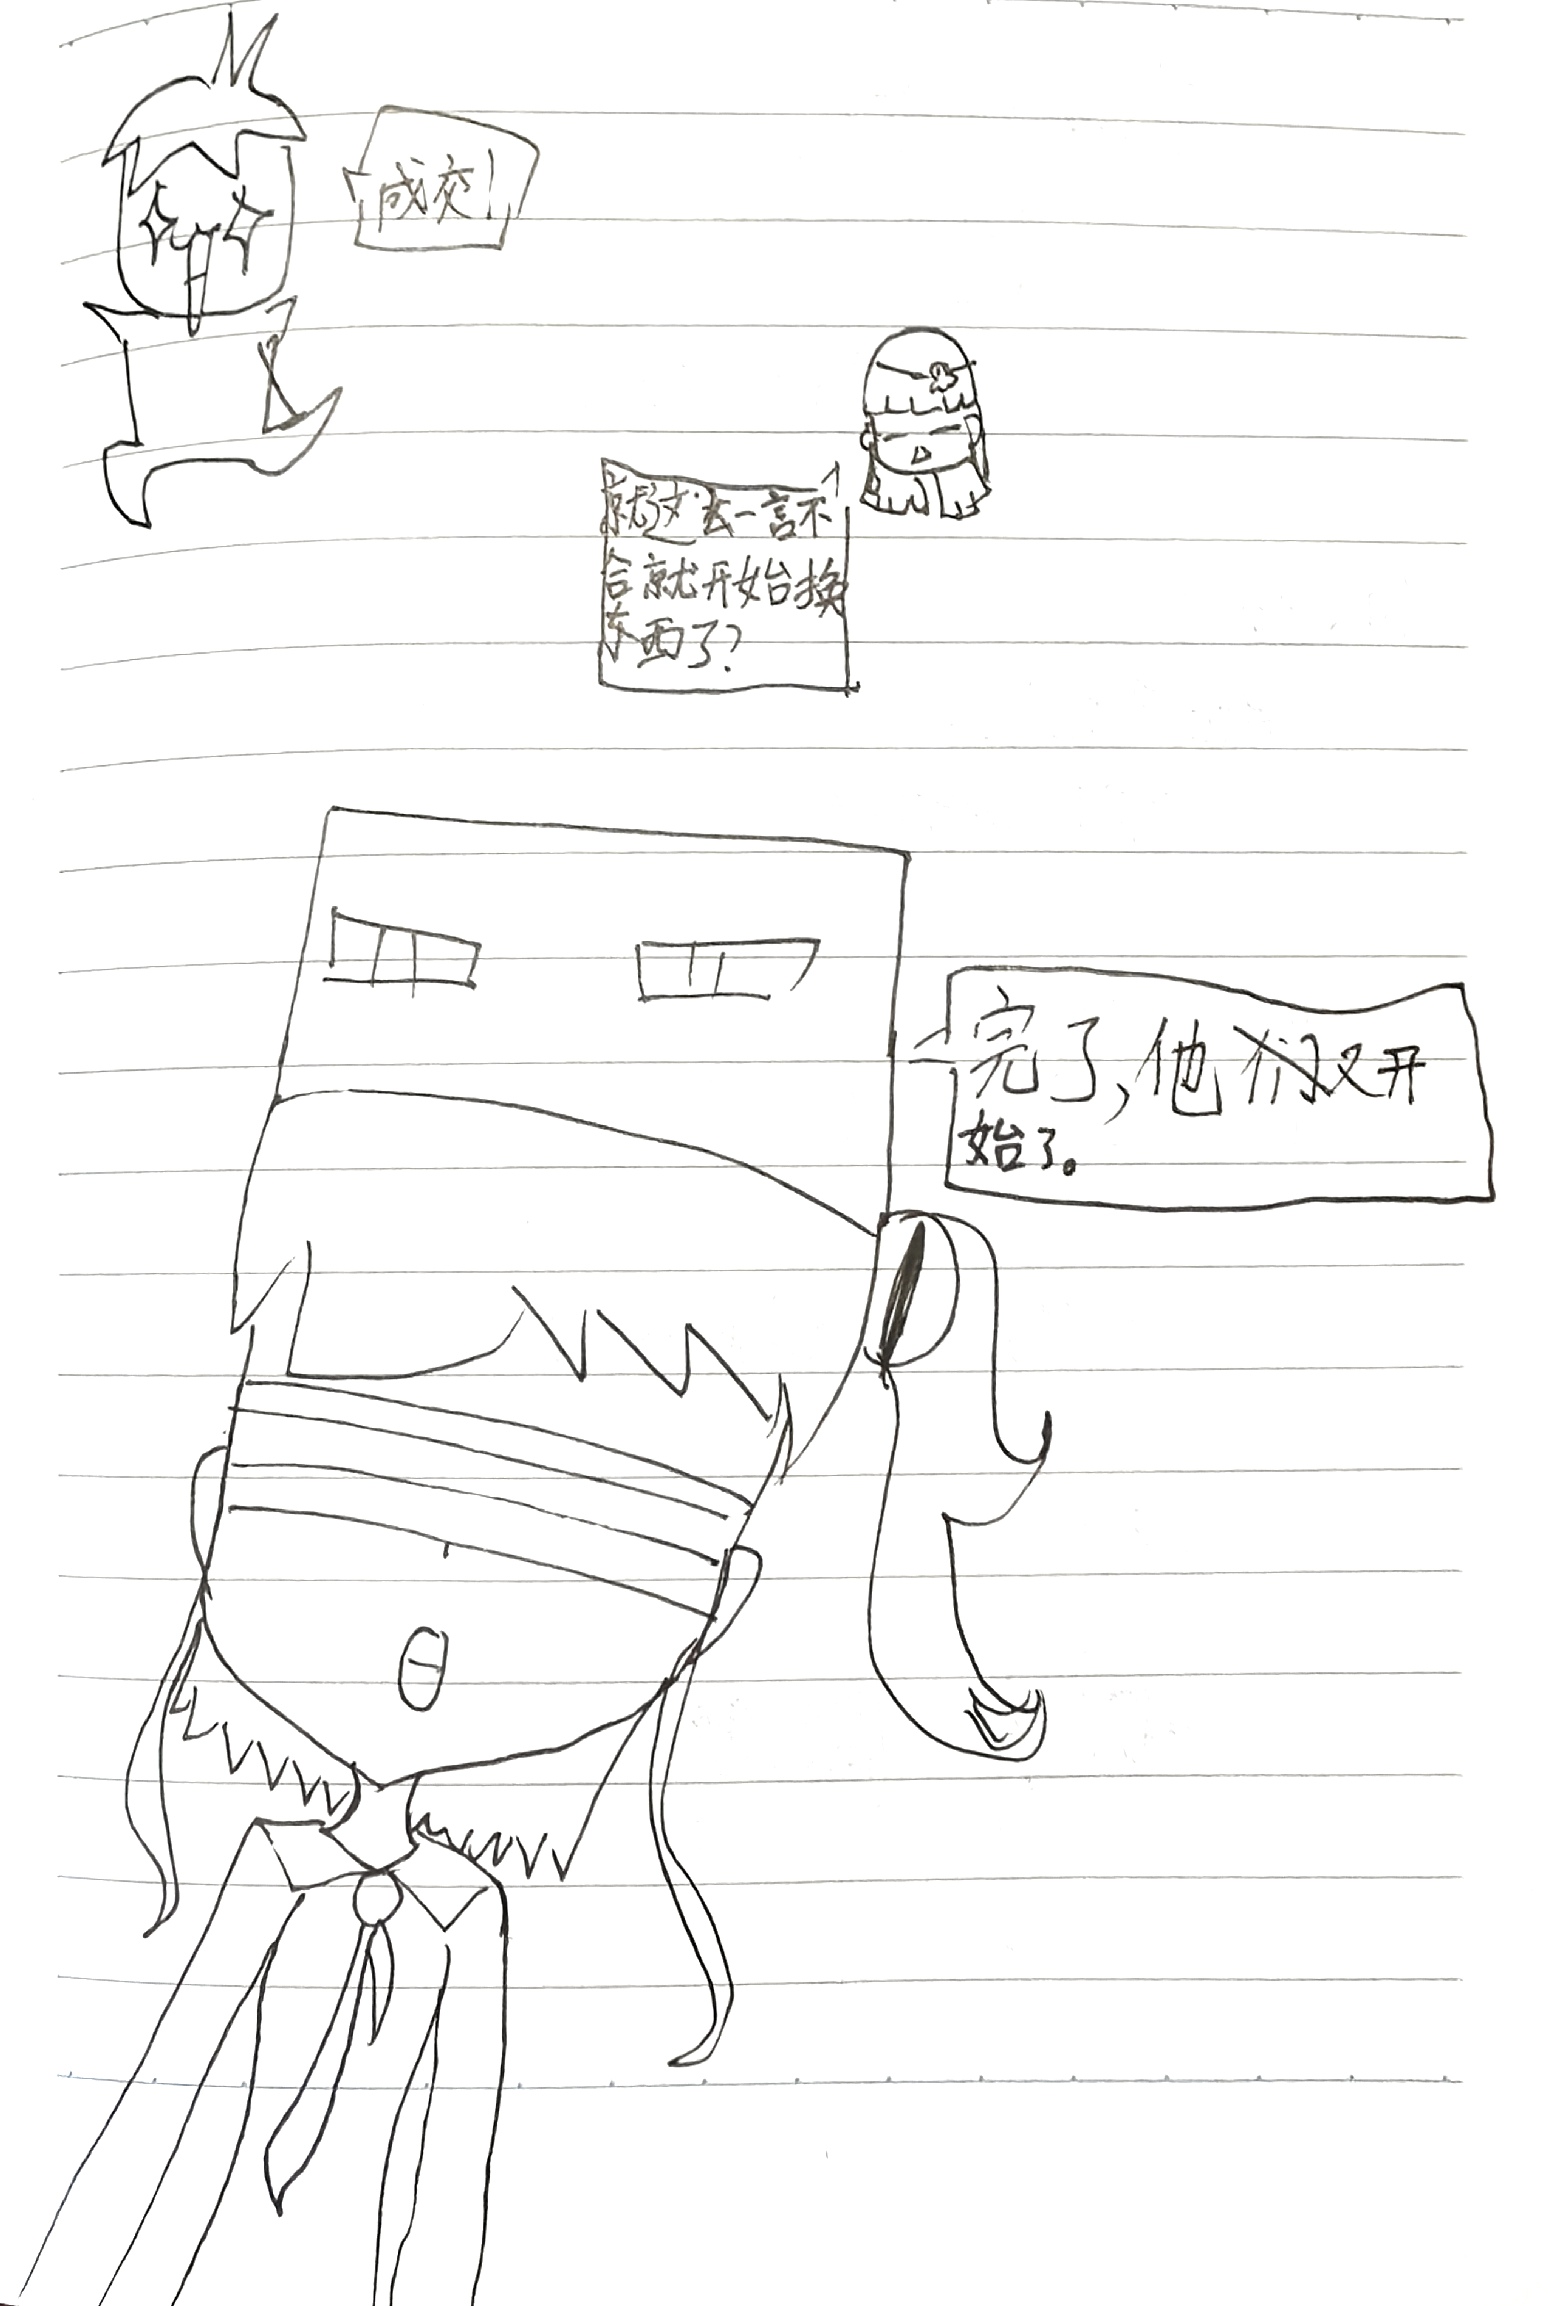 成交!
就这么一言不
合就开始换
东西了?
完了,他们又开
始了。